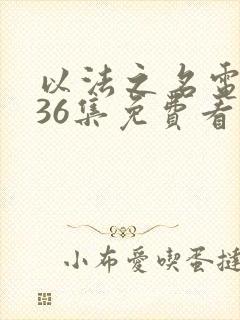 以法之名電
36集免費看
小布愛喫蛋撻